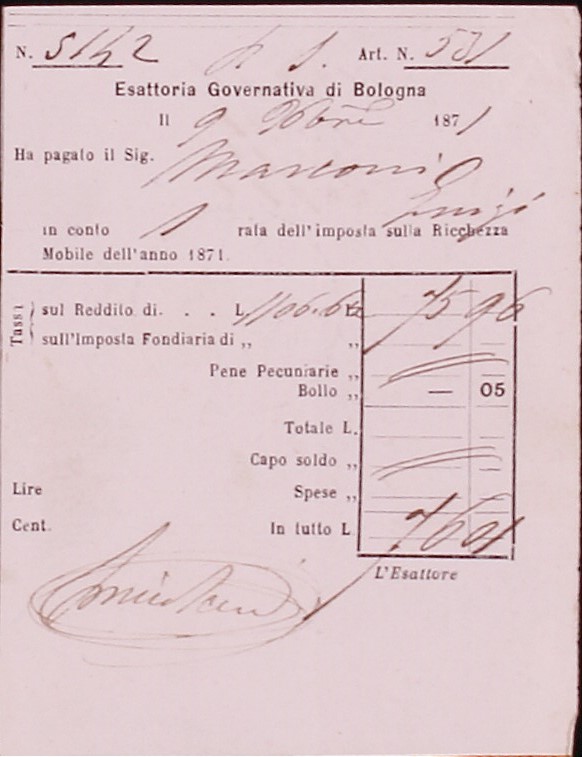 N. 5142 Art. N. 531
Esattoria Governativa di Bologna
Il 9 Xbre 1871
Ha pagato il Sig. Marconi
Luigi
in conto 1 rata dell'imposta sulla Ricchezza
Mobile dell'anno 1871.
Tassa
sul Reddito di. . . L. 1106.6 75 96
sull'Imposta Fondiaria di „ „
Pene Pecuniarie „
Bollo „ — 05
Totale L.
Capo soldo „
Lire Spese „
Cent. In tutto L. 76 01
L'Esattore